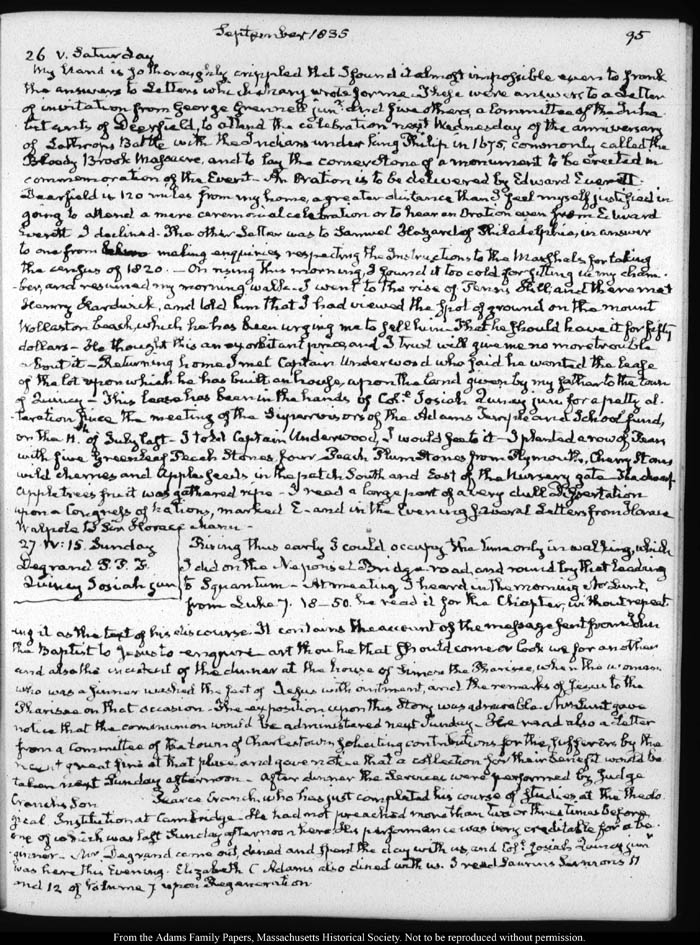 September 1835 95
26 V. Saturday
My Hand is so thoroughly crippled that I found it almost impossible even to frank
the answers to Letters which Mary wrote for me. These were answers to a Letter
of invitation from George Grennell junr. and five others, a Committee of the Inha-
bitants of Deerfield, to attend the celebration next Wednesday of the anniversary
of Lothrops Battle with the Indians under King Philip in 1675, commonly called the
Bloody Brook Massacre, and to lay the cornerstone of a monument to be erected in
commemoration of the Event. An Oration is to be delivered by Edward Everett.
Deerfield is 120 miles from my home, a greater distance than I feel myself justified in
going to attend a mere ceremonial celebration or to hear an Oration even from Edward
Everett. I declined. The other Letter was to Samuel Hazard of Philadelphia, in answer
to one from making enquiries respecting the Instructions to the Marshals for taking
the census of 1820. — On rising this morning, I found it too cold for sitting in my cham-
ber, and resumed my morning walk. I went to the rise of Penns Hill, and there met
Henry Hardwick, and told him that I had viewed the spot of ground on the mount
Wollaston beach, which he has been urging me to sell him. That he should have it for fifty
dollars — He thought this an exorbitant price, and I trust will give me no more trouble
about it — Returning home I met Captain Underwood who said he wanted the lease
of the lot upon which he has built an house, upon the land given by my father to the town
of Quincy — This lease has been in the hands of Coll. Josiah Quincy junr for a petty al-
teration since the meeting of the Supervisors of the Adams Temple and School fund,
on the 11th. of July last — I told Captain Underwood, I would see to it — I planted a row of Pears
with five Greenleaf Peach Stones, four Beach Plum Stones from Plymouth, Cherry Stones
wild cherries and Apple seeds in the patch South and East of the Nursery gate
Apple trees fruit was gathered ripe — I read a large part of a very dull Dissertation
upon a Congress of Nations, marked E — and in the Evening several Letters from Horace
Walpole to Sir Horace Mann —
27. IV:15. Sunday Rising thus early I could occupy the time only in walking, which
Degrand P. P. F. I did on the Neponset Bridge road, and round by that leading
Quincy Josiah jun to Squantum — At meeting I heard in the morning Mr Lunt,
from Luke 7. 18–50. he read it for the Chapter, without repeat-
ing it as the text of his discourse. It contains the account of the message sent from John
the Baptist to Jesus to enquire art thou he that should come or look we for another
and also the incident of the dinner at the house of Simon the Pharisee, when the woman
who was a sinner washed the feet of Jesus with ointment, and the remarks of Jesus to the
Pharisee on that occasion. The exposition upon this Story was admirable. Mr Lunt gave
notice that the communion would be administered next Sunday — He read also a Letter
from a Committee of the town of Charlestown soliciting contributions for the sufferers by the
recent great fire at that place and gave notice that a collection for their benefit would be
taken next Sunday afternoon — After dinner the Services were performed by Judge
Cranch's Son Pearce Cranch, who has just completed his course of studies at the Theolo-
gical Institution at Cambridge. He had not preached more than two or three times before
one of which was last Sunday afternoon here. His performance was very creditable for a be-
ginner — Mr Degrand come out, dined and spent the day with us and Coll. Josiah Quincy jun
was here this Evening. Elizabeth C Adams also dined with us. I read Saurins Sermons 11
and 12 of Volume 7 upon Regeneration
From the Adams Family Papers, Massachusetts Historical Society. Not to be reproduced without permission.